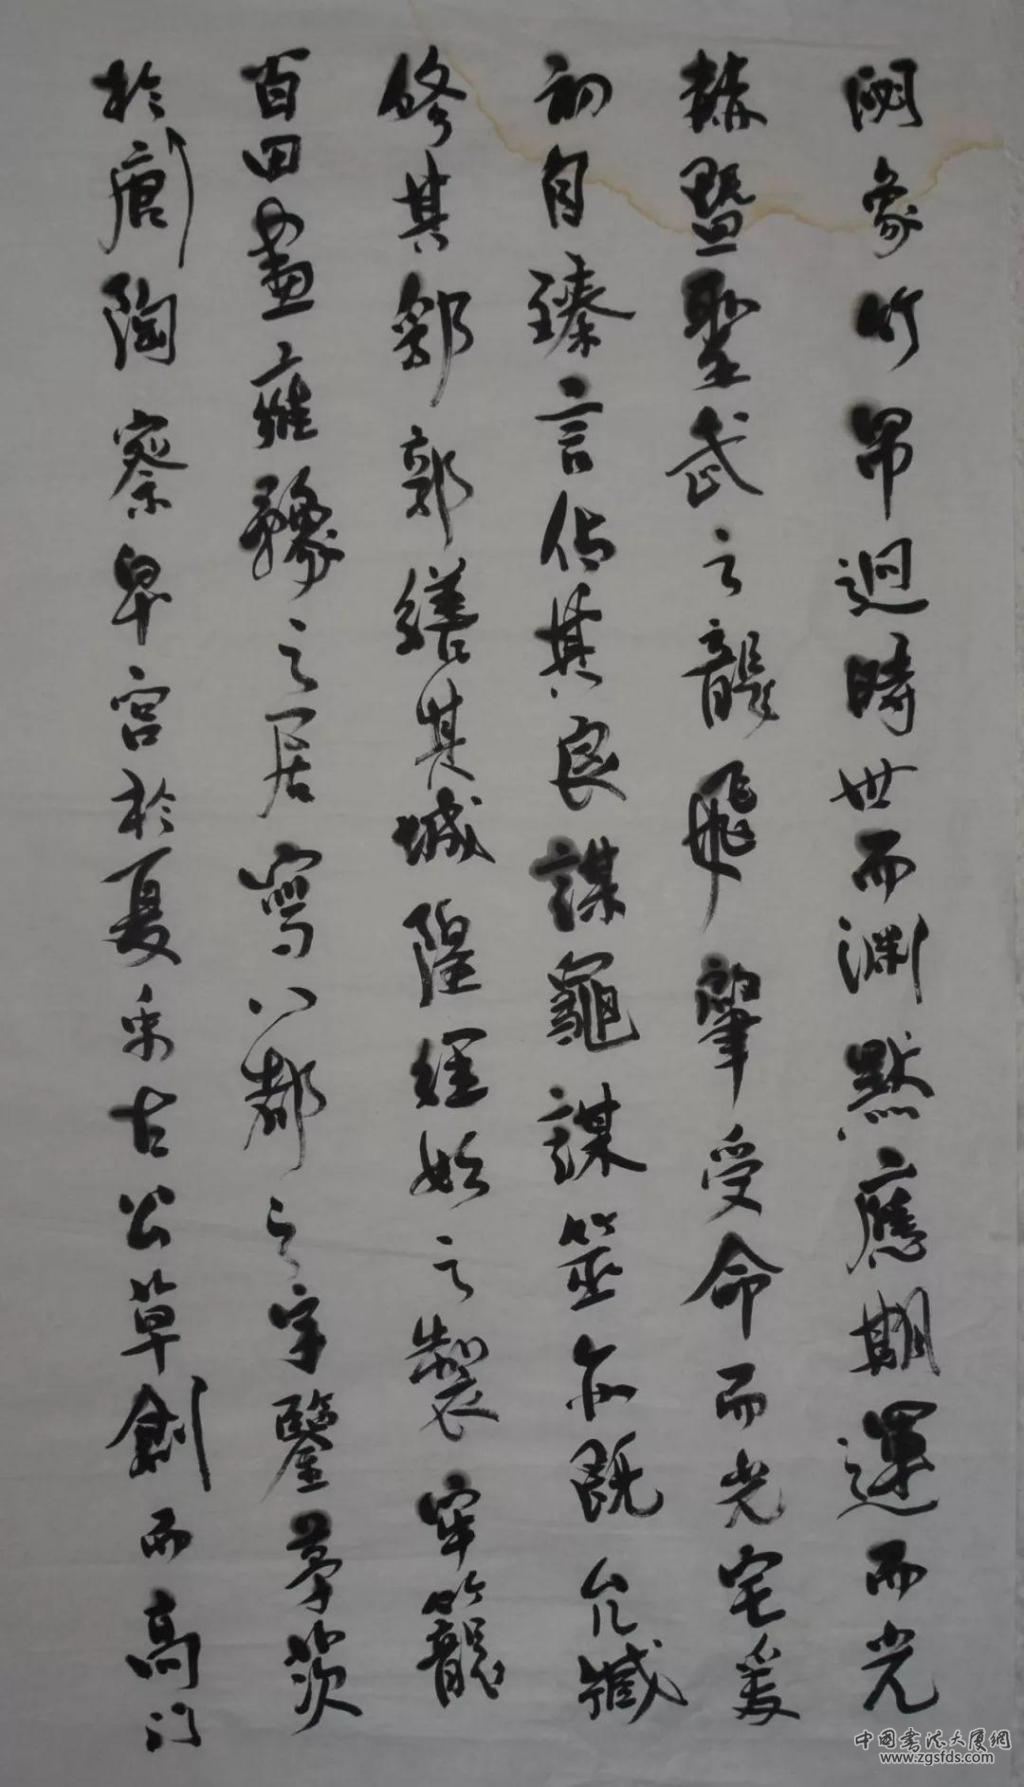 閟象竹帛迥時世而淵默應期運而光
赫暨聖武之龍飛肇受命而光宅爰
初自臻言佔其良謀龜謀筮亦既允臧
修其郛郭繕其城隍經始之製牢籠
百田畫雍豫之居寫八都之宇鑒茅茨
於唐陶察卑宮於夏禹古公草創而高門
中国书法大厦網
www.zgsfds.com